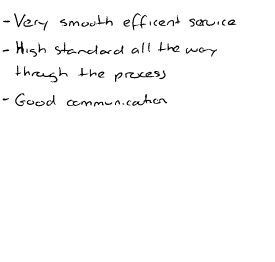 - Very smooth efficent service
- High standard all the way
through the process
- Good communication